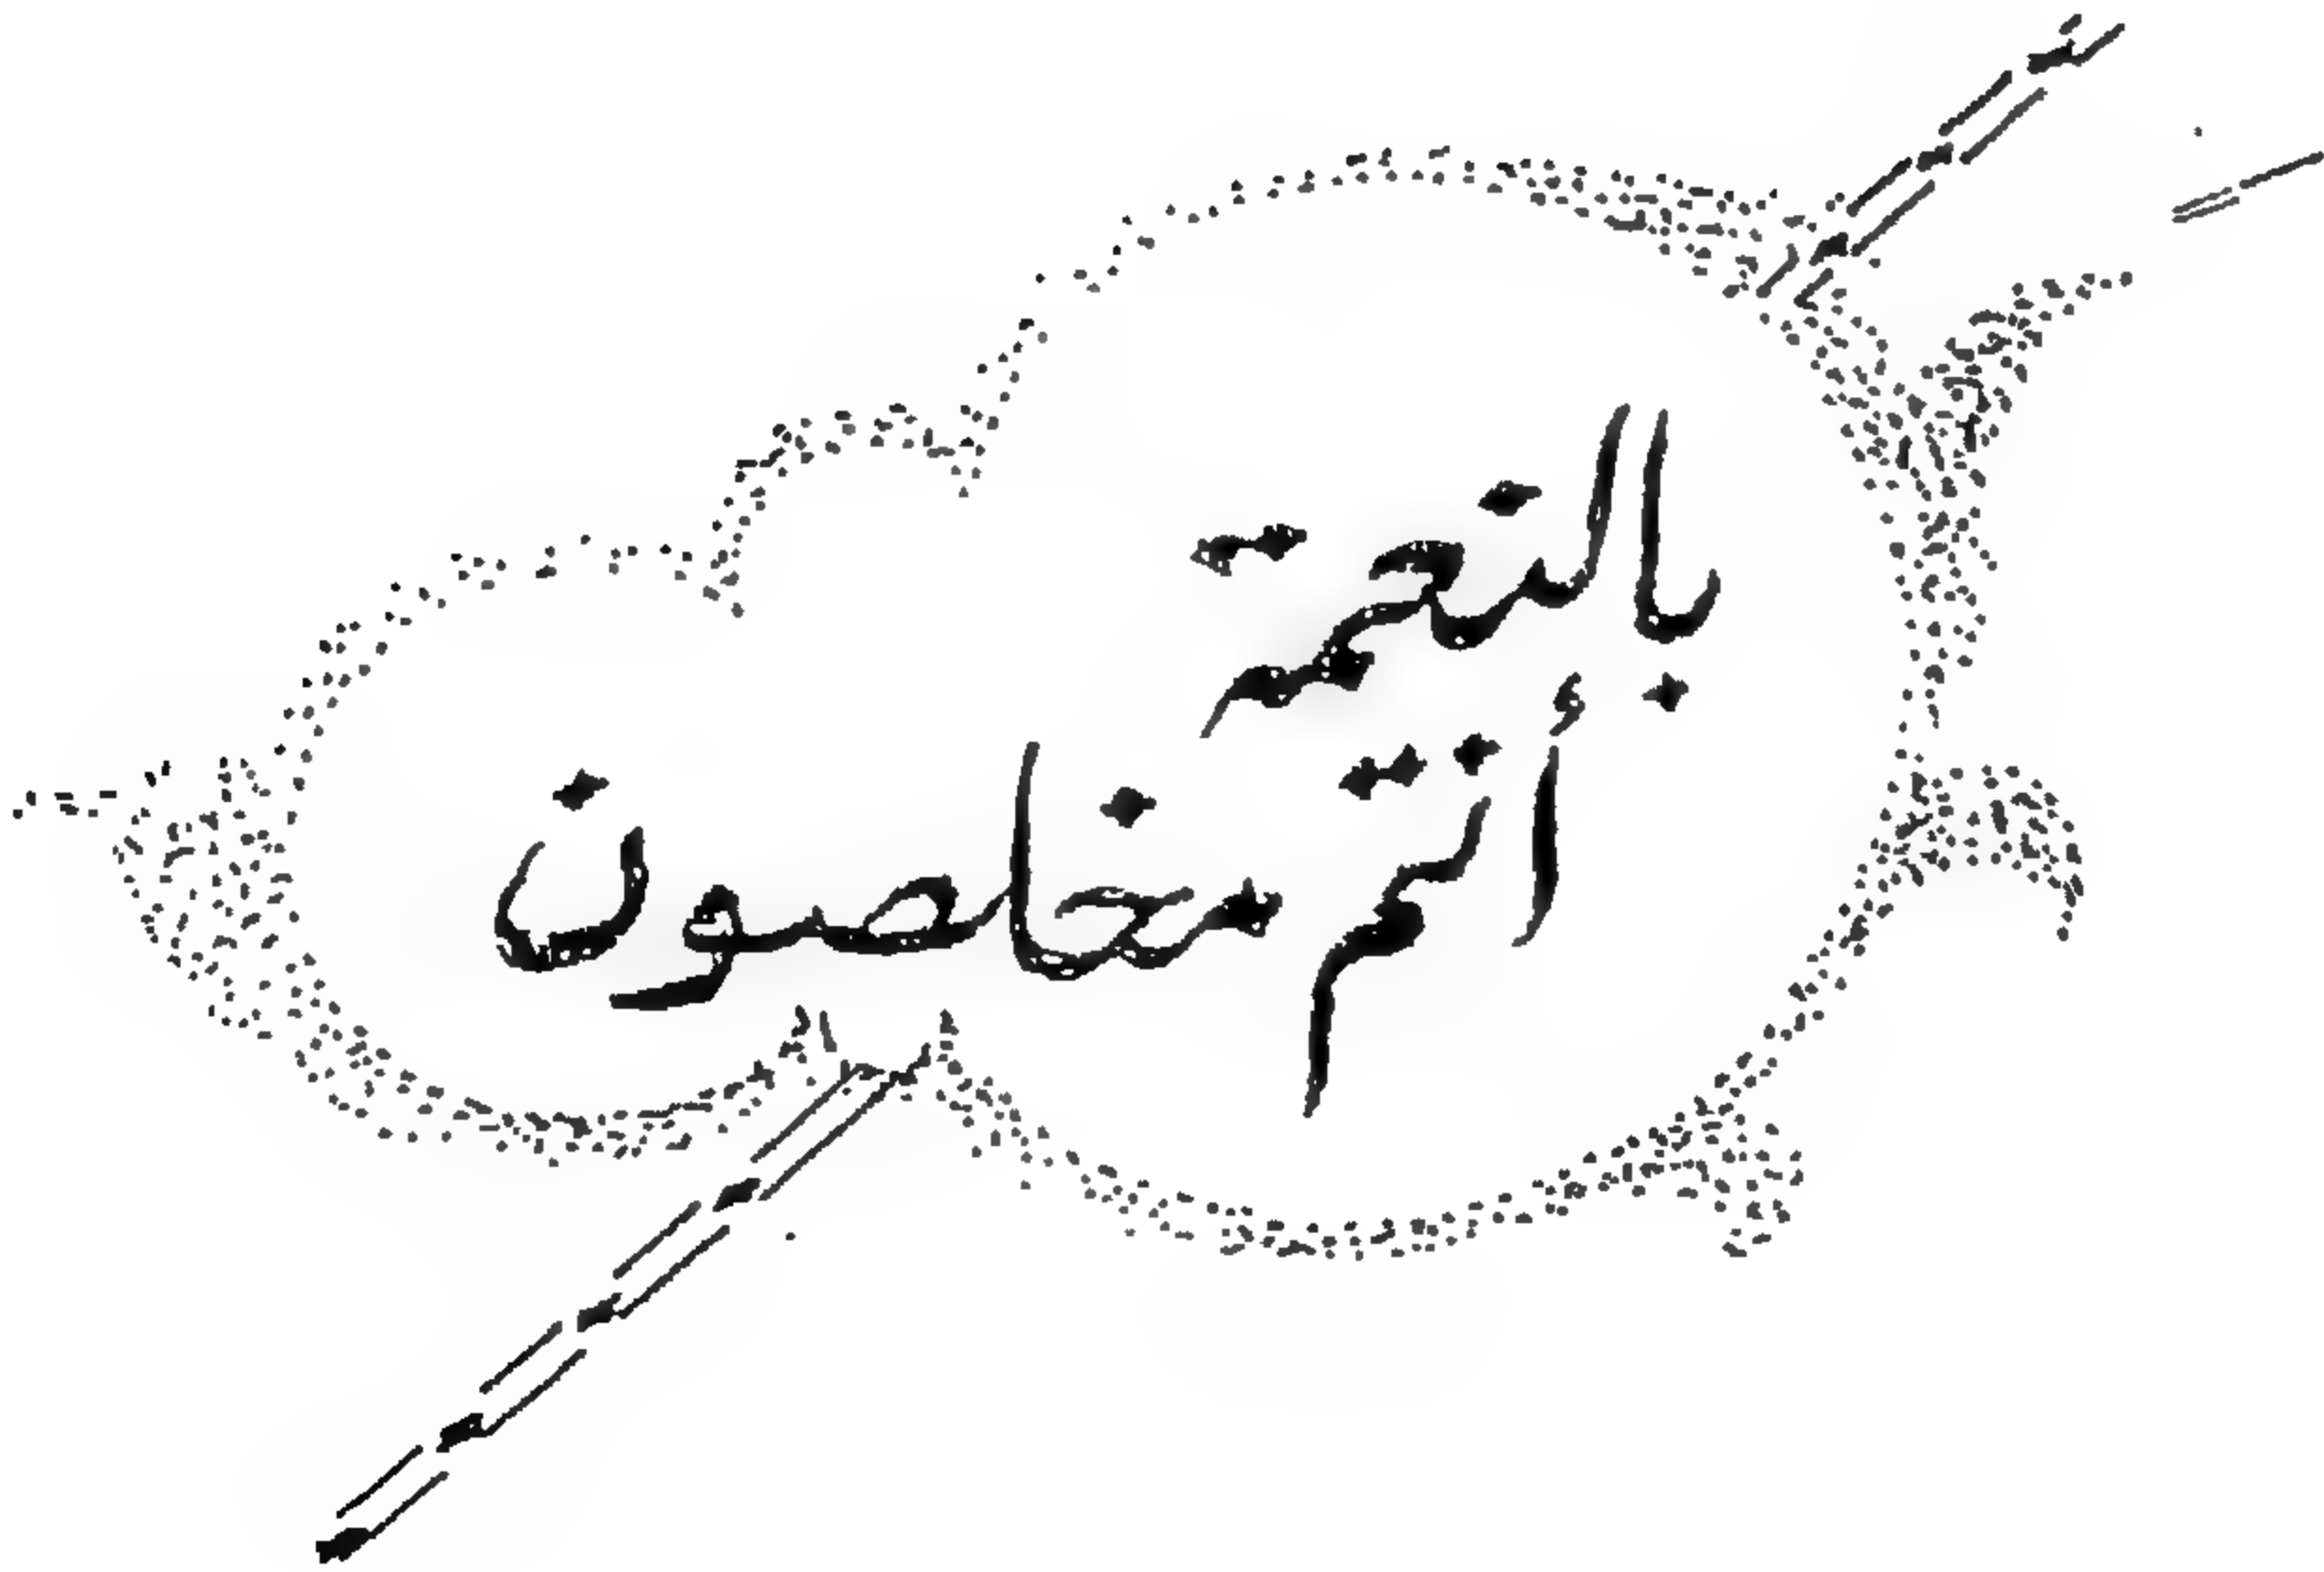 بالنعمة
أنتم مخلصون